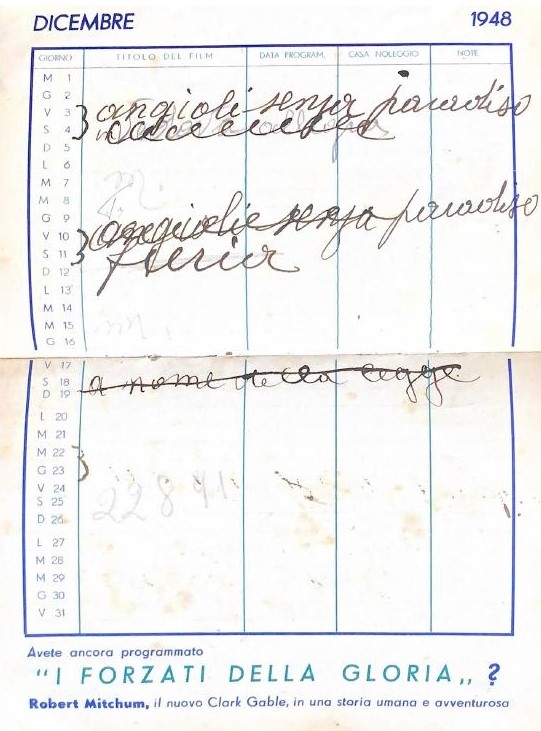 DICEMBRE 1948
GIORNO TITOLO DEL FILM DATA PROGRAM. CASA NOLEGGIO NOTE
M 1
G 2
V 3 angioli senza paradiso
S 4
D 5
L 6
M 7
M 8
G 9
V 10 angiolie senza paradiso
S 11 furia
D 12
L 13
M 14
M 15
G 16
V 17
S 18 a nome della legge
D 19
L 20
M 21
M 22
G 23
V 24
S 25
D 26
L 27
M 28
M 29
G 30
V 31
Avete ancora programmato
"I FORZATI DELLA GLORIA„ ?
Robert Mitchum, il nuovo Clark Gable, in una storia umana e avventurosa